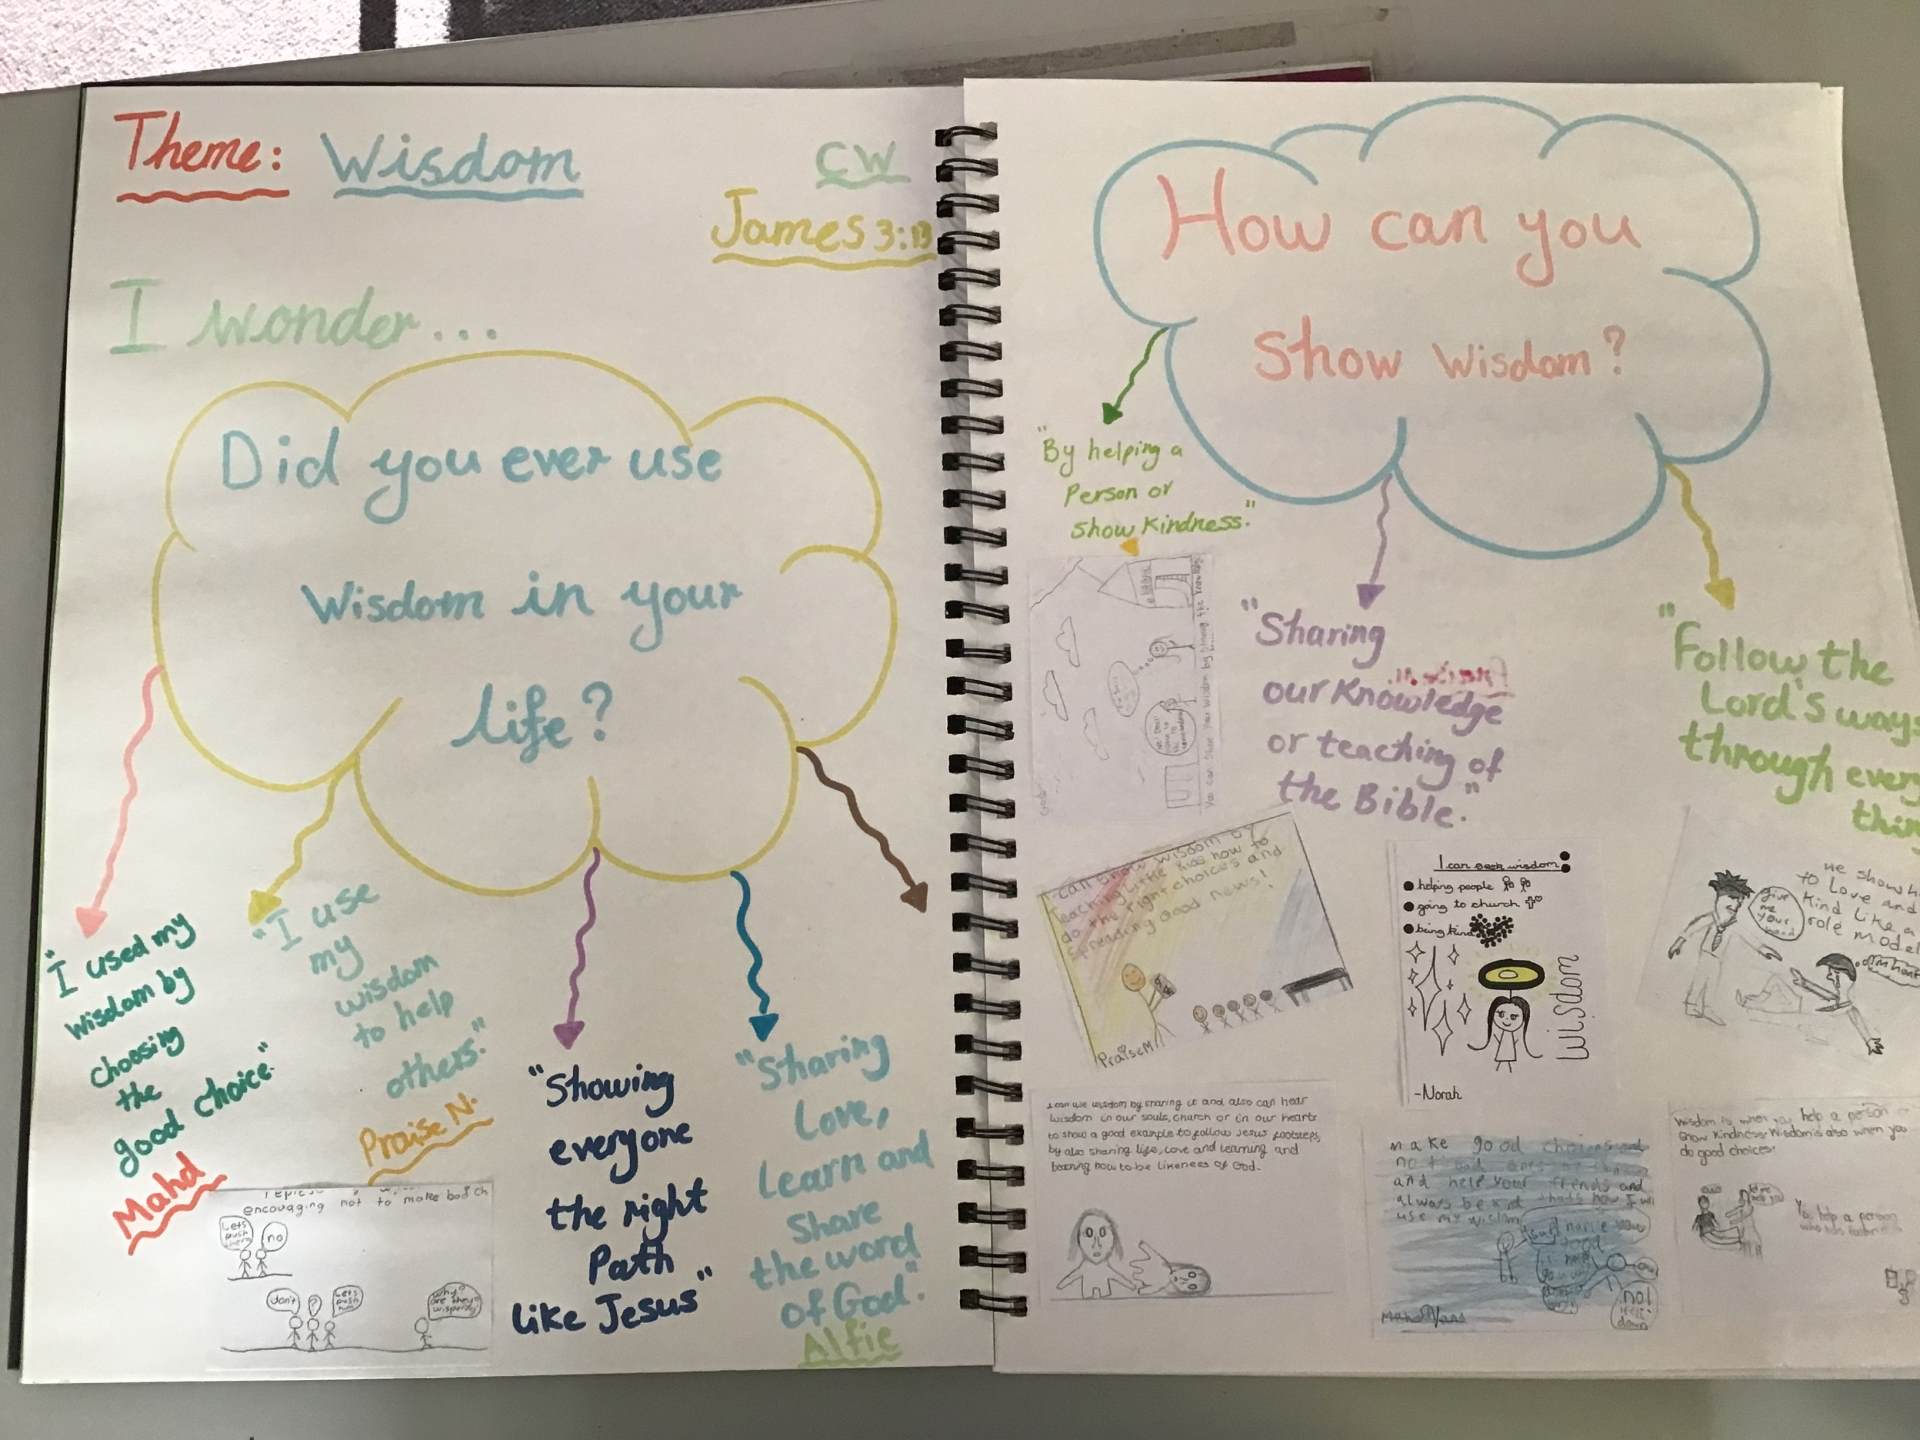 Theme: Wisdom
CW
James 3:13
I wonder...
Did you ever use
Wisdom in your
life?
"I used my
wisdom by
choosing
the
good choice."
Mahd
"I use
my
wisdom
to help
others."
Praise N.
encouraging not to make bad ch
Lets push them
no
don't
?
Lets push him
Why are they
"Showing
everyone
the right
Path
like Jesus"
"Sharing
Love,
Learn and
Share
the word
of God."
Alfie
How can you
Show Wisdom?
"By helping a
Person or
show kindness."
"Sharing
our Knowledge
or teaching of
the Bible."
"Follow the
Lord's ways
through every
thing
I can show wisdom by
teaching little kids how to
do the right choices and
spreading good news!
PraiseM
I can seek wisdom
helping people
going to church
being kind
Wisdom
-Norah
We show
to Love and
kind like a
role model
give me your hand
wisdom by sharing it and also can hear
wisdom in our souls, church or in our hearts
to show a good example to follow Jesus footsteps
by also sharing life, love and learning and
learning how to be likeness of God.
make good choices and
not bad ones
and help your friends and
always be kind that's how I
use my wisdom
no!
Wisdom is when you help a person or
show kindness. Wisdom is also when you
do good choices.
You help a person
who